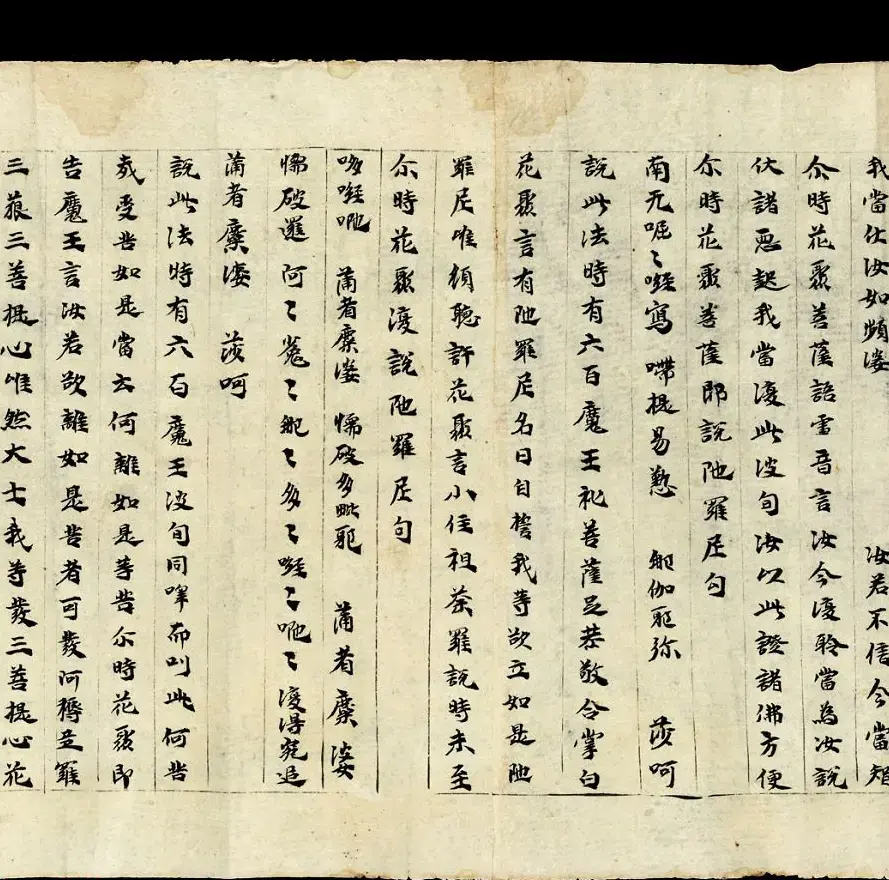 我當伏汝如頻婆 汝若不信今當知
尒時花聚菩薩語雷音言汝今復聆當為汝說
伏諸惡起我當復此波旬汝以此證諸佛方便
尒時花聚菩薩即說陁羅尼句
南无啒〻𠽾寫 啼提易懃 䶩伽耶弥 莎呵
說此法時有六百魔王礼菩薩足恭敬合掌白
花聚言有陁羅尼名曰自誓我等欲立如是陁
羅尼唯願聽許花聚言小住祖荼羅說時未至
尒時花聚復說陁羅尼句
哆𠽾咃 蒲者糜婆 懦破多毗耶 蒲者糜婆
懦破邏 阿〻 〻 〻多〻𠽾〻咃〻復得究追
蒲者糜婆 莎呵
說此法時有六百魔王波旬同聲而叫此何苦
哉受苦如是當云何離如是等苦尒時花聚即
告魔王言汝若欲離如是苦者可發阿耨三羅
三藐三菩提心唯然大士我等發三菩提心花